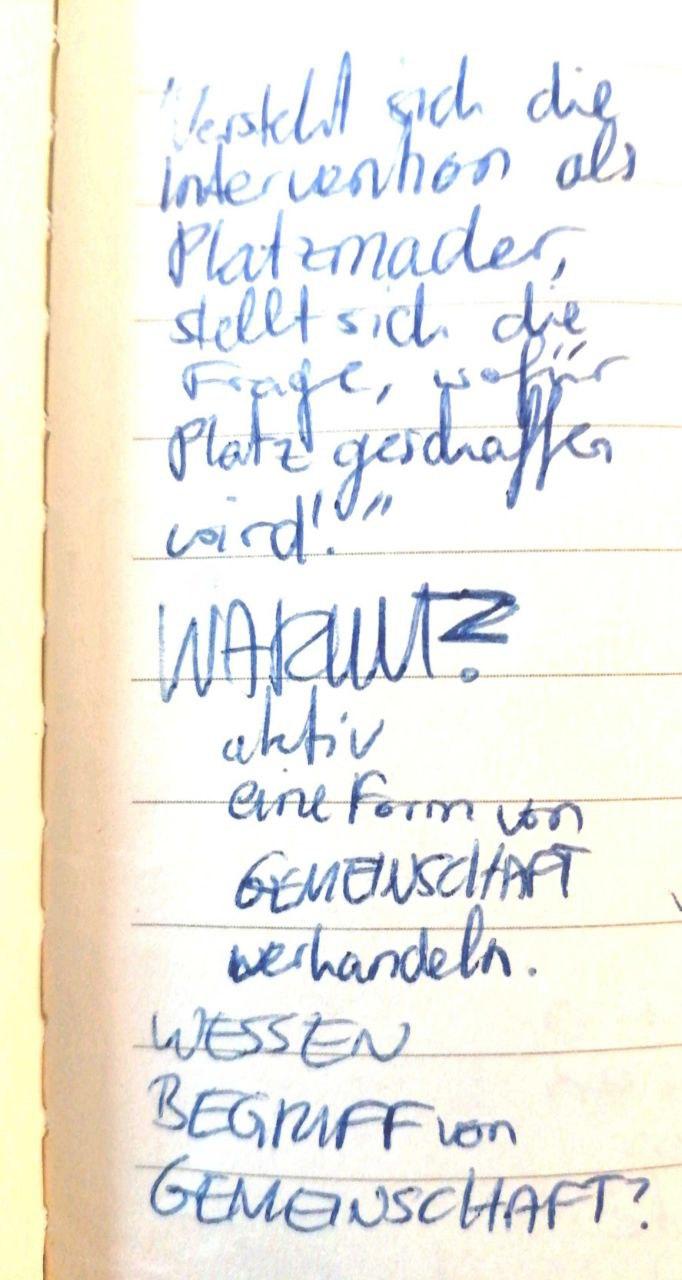 Versteht sich die
Intervention als
Platzmacher,
stellt sich die
Frage, wofür
Platz geschaffen
wird!"
WARUM?
aktiv
eine Form von
GEMEINSCHAFT
verhandeln.
WESSEN
BEGRIFF von
GEMEINSCHAFT?